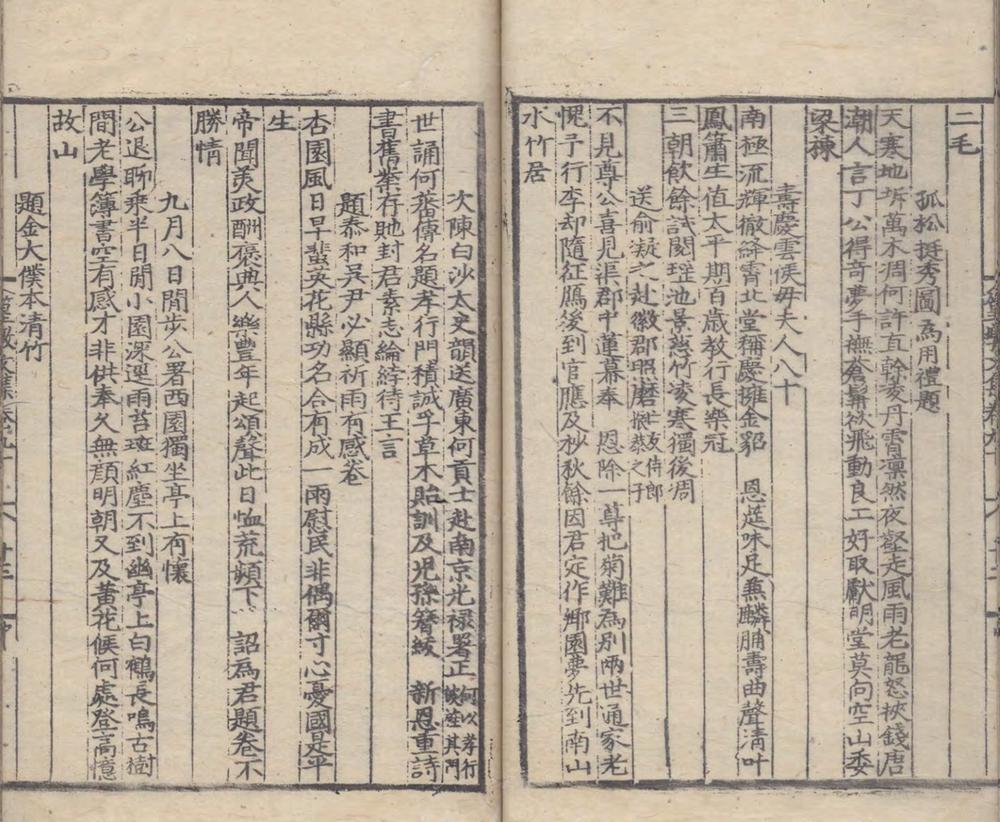 二毛
孤松挺秀圖為用禮題
天寒地坼萬木凋何許直幹凌丹霄凜然夜壑走風雨老龍怒挾錢唐
潮人言丁公得奇夢手撫倉髯欲飛動良工好取獻明堂莫向空山委
梁棟
壽慶雲侯母夫人八十
南極流輝徹絳霄北堂稱慶擁金貂 恩筵味足薦麟脯壽曲聲清叶
鳳簫生值太平期百歲教行長樂冠
三朝飲餘試閱瑶池景慈竹凌寒獨後凋
送俞凝之赴徽郡照磨
不見尊公喜見渠郡中蓮幕奉 恩除一尊把菊難為別兩世通家老
愧予行李却隨征鴈後到官應及杪秋餘因君定作鄉園夢先到南山
水竹居
次陳白沙太史韻送廣東何貢士赴南京光祿署正何以孝行
世誦何蕃傳名題孝行門積誠孚草木貽訓及児孫簪紱 新恩重詩
書舊業存貤封君素志綸綍待王言
題泰和吳尹必顯祈雨有感卷
杏園風日早蜚英花縣功名合有成一雨慰民非偶爾寸心憂國是平
生
帝聞美政酬褒典人樂豊年起頌聲此日恤荒頻下 詔為君題卷不
勝情
九月八日閒步公署西園獨坐亭上有懷
公退聊乘半日閒小園深遝雨苔斑紅塵不到幽亭上白鶴長鳴古樹
間老學簿書空有感才非供奉久無顔明朝又及黃花候何處登高憶
故山
題金大僕本清竹